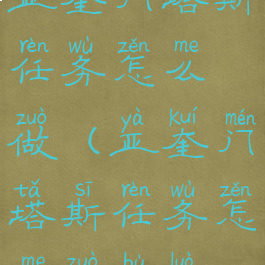 亚奎门塔斯
rèn wù zěn me
任务怎么
zuò yà kuí mén
做（亚奎门
tǎ sī rèn wù zěn
塔斯任务怎
me zuò bù luò